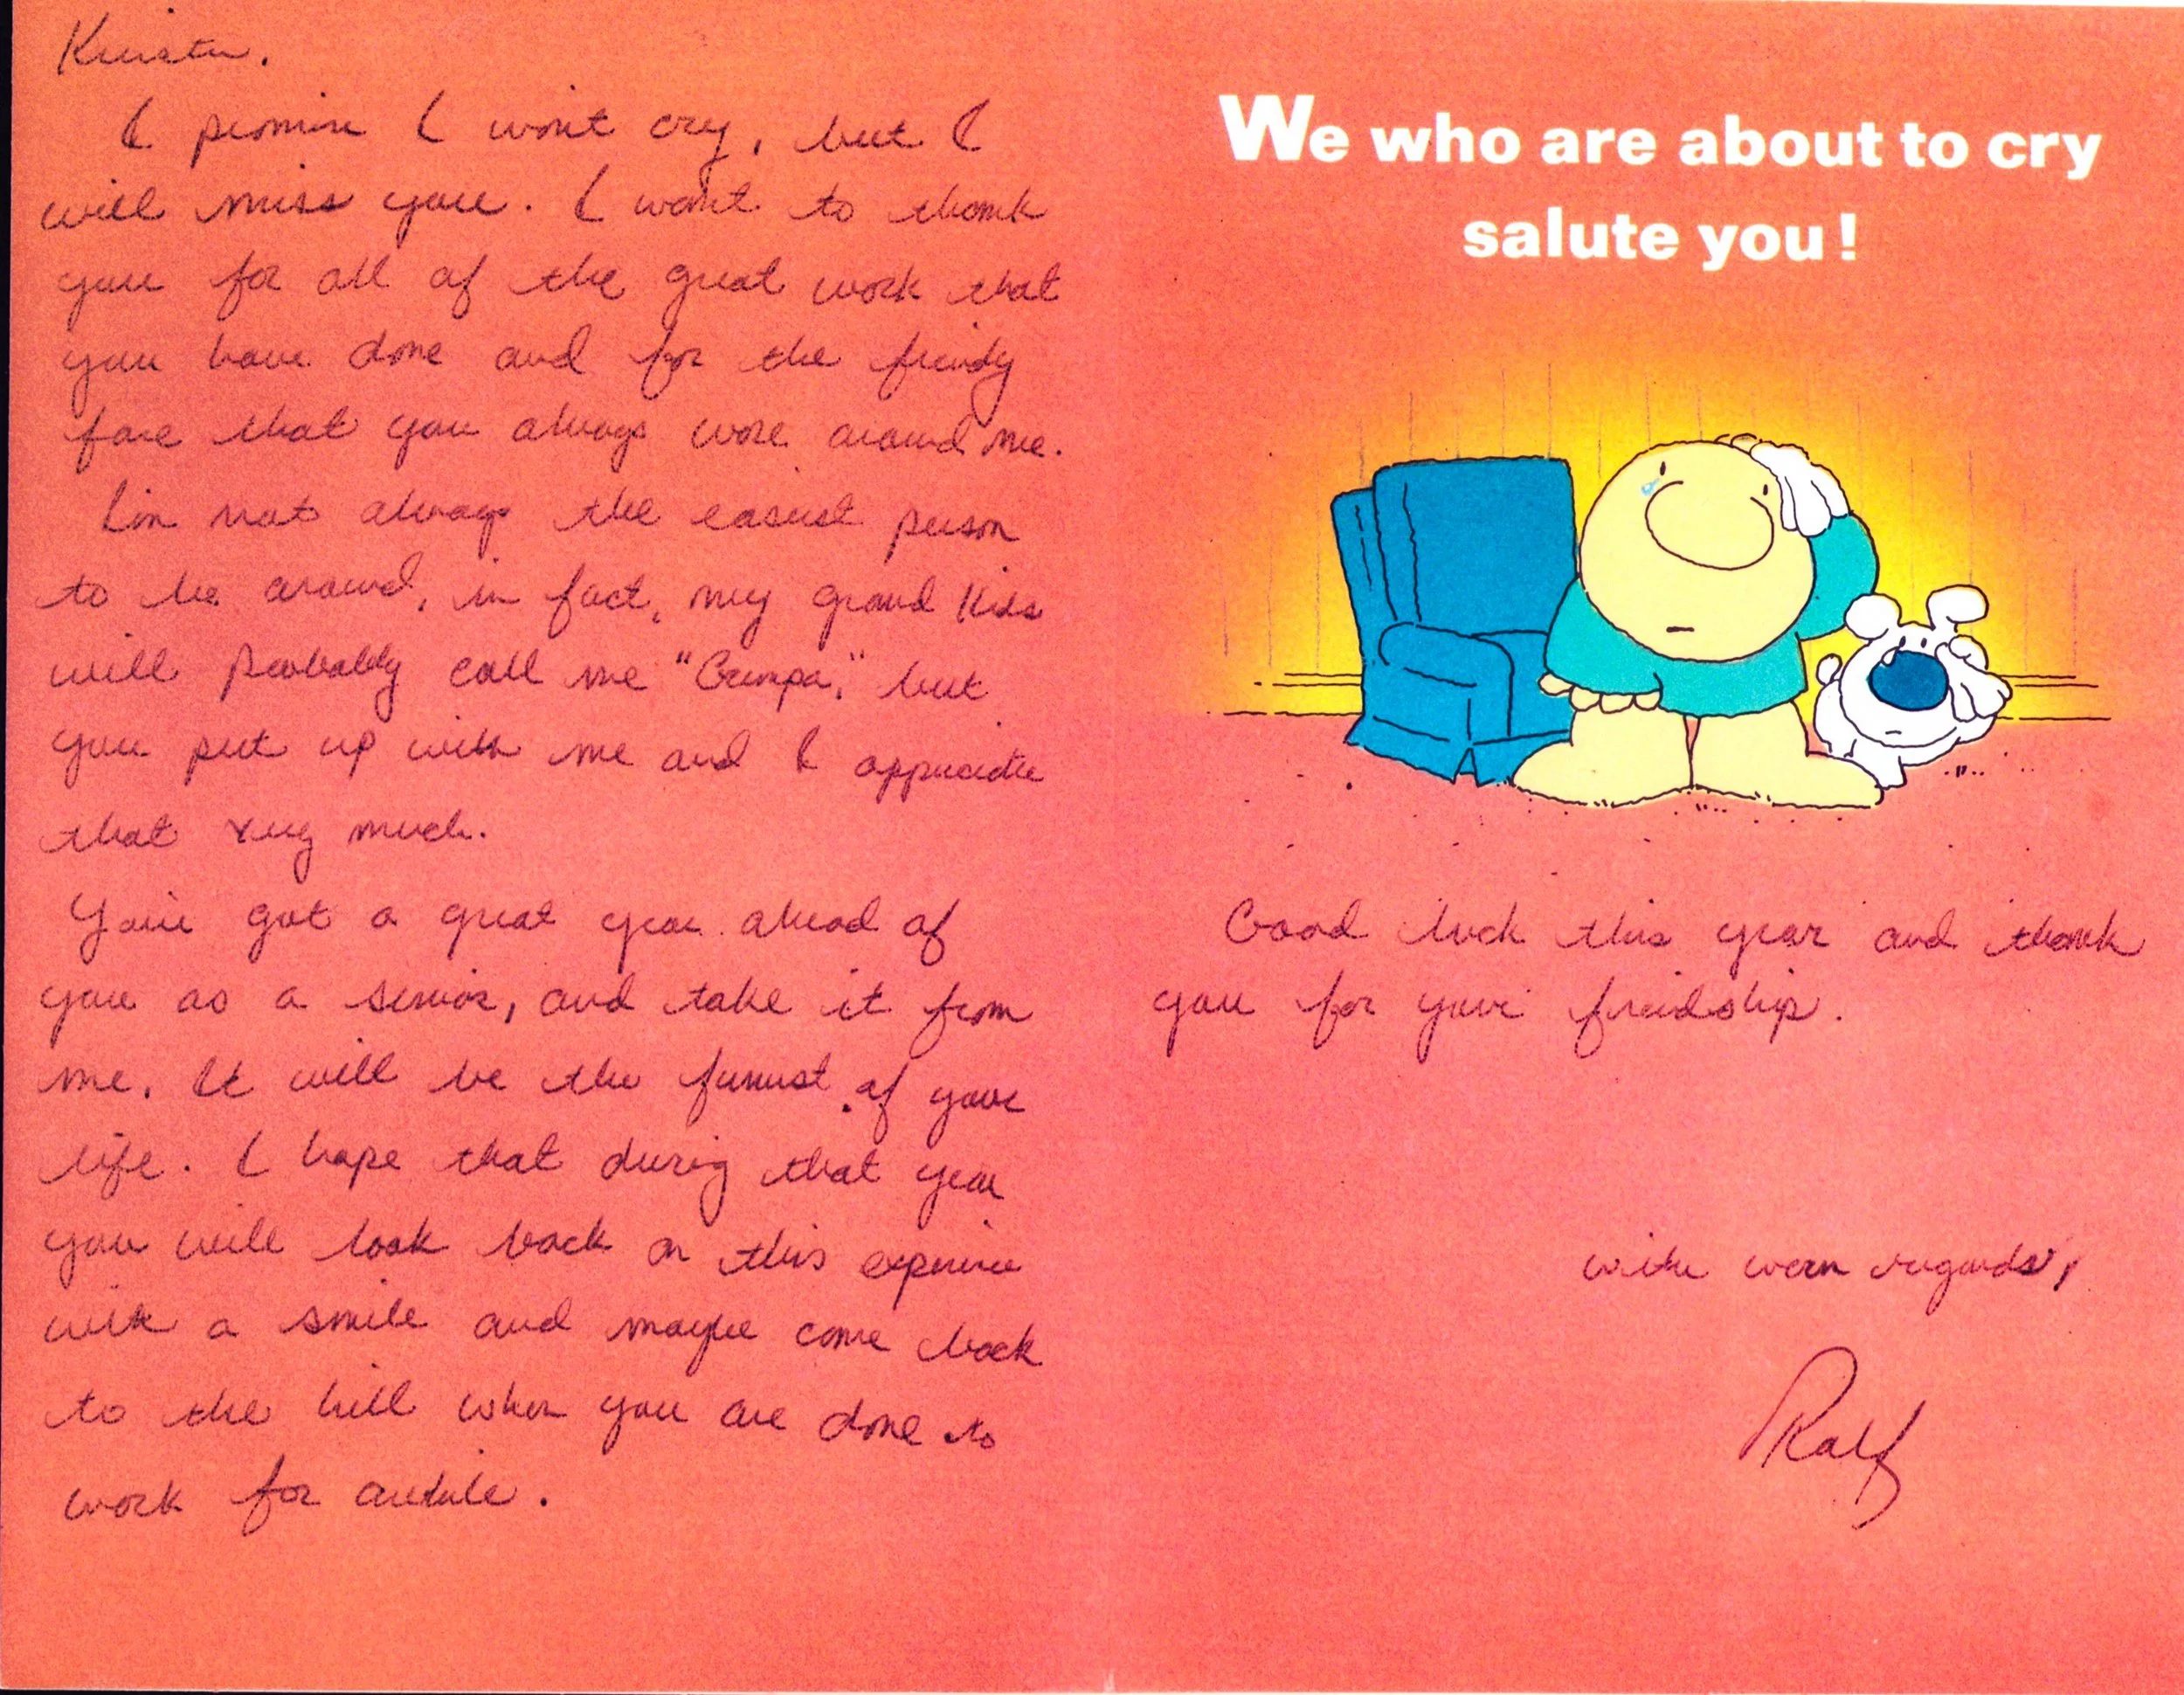 Kirsten,
I promise I won't cry, but I
will miss you. I want to thank
you for all of the great work that
you have done and for the friendly
face that you always wore around me.
I'm not always the easiest person
to be around, in fact, my grand kids
will probably call me "Grumpa," but
you put up with me and I appreciate
that very much.
You've got a great year ahead of
you as a senior, and take it from
me. It will be the funnest of your
life. I hope that during that year
you will look back on this experience
with a smile and maybe come back
to the hill when you are done to
work for awhile.
We who are about to cry
salute you!
Good luck this year and thank
you for your friendship.
with warm regards,
Ralf